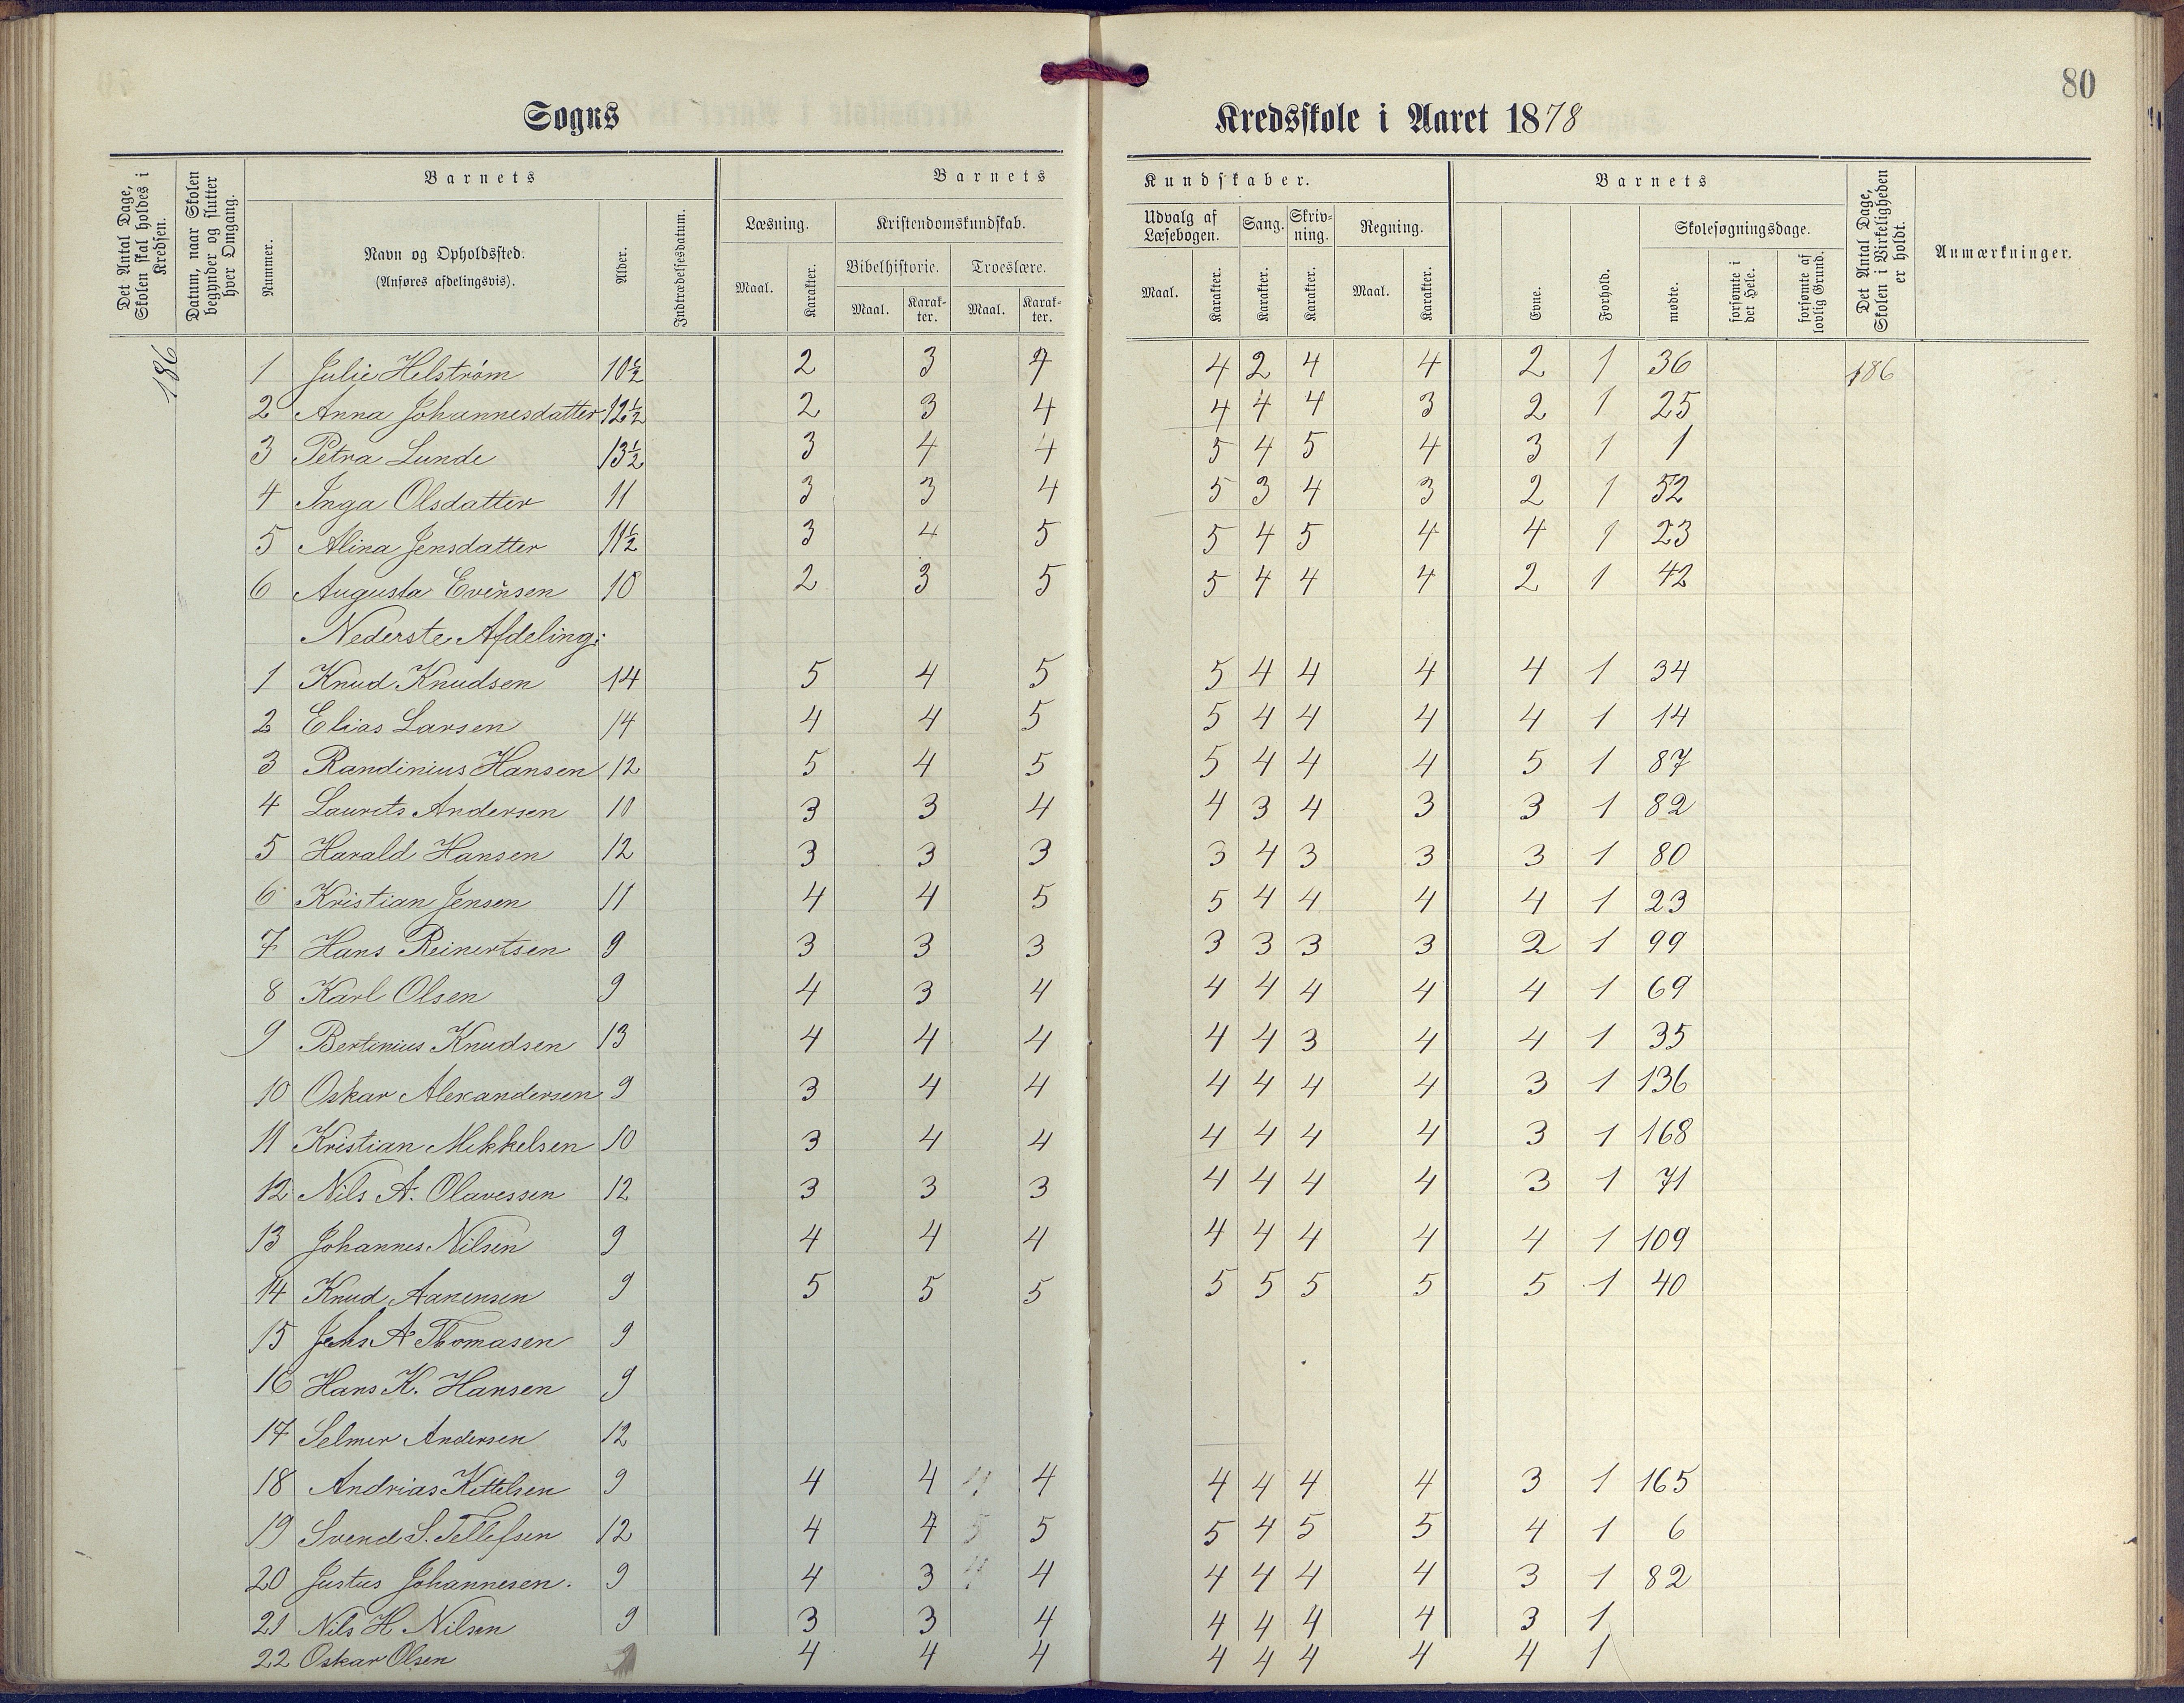 80
Sogns Kredsskole i Aaret 1878
Det Antal Dage, Skolen skal holdes i Kredsen.
Datum, naar Skolen begynder og slutter hver Omgang.
Barnets
Nummer.
Navn og Opholdssted.
(Anføres afdelingsvis).
Alder.
Indtrædelsesdatum.
Barnets Kundskaber.
Læsning.
Maal. Karakter.
Kristendomskundskab.
Bibelhistorie. Troeslære.
Maal. Karakter. Maal. Karakter.
Udvalg af Læsebogen. Sang. Skrivning. Regning.
Maal. Karakter. Karakter. Karakter. Maal. Karakter.
Barnets
Evne. Forhold.
Skolesøgningsdage.
mødte. forsømte i det Hele. forsømte af lovlig Grund.
Det Antal Dage, Skolen i Virkeligheden er holdt.
Anmærkninger.
186
1 Julie Helström 10½ 2 3 4 4 2 4 4 2 1 36 186
2 Anna Johannesdatter 12½ 2 3 4 4 4 4 3 2 1 25
3 Petra Lunde 13½ 3 4 4 5 4 5 4 3 1 1
4 Inga Olsdatter 11 3 3 4 5 3 4 3 2 1 52
5 Alina Jensdatter 11½ 3 4 5 5 4 5 4 4 1 23
6 Augusta Evensen 10 2 3 5 5 4 4 4 2 1 42
Nederste Afdeling:
1 Knud Knudsen 14 5 4 5 5 4 4 4 4 1 34
2 Elias Larsen 14 4 4 5 5 4 4 4 4 1 14
3 Randinius Hansen 12 5 4 5 5 4 4 4 5 1 87
4 Laurits Andersen 10 3 3 4 4 3 4 3 3 1 82
5 Harald Hansen 12 3 3 3 3 4 3 3 3 1 80
6 Kristian Jensen 11 4 4 5 5 4 4 4 4 1 23
7 Hans Reinertsen 9 3 3 3 3 3 3 3 2 1 99
8 Karl Olsen 9 4 3 4 4 4 4 4 4 1 69
9 Bertinius Knudsen 13 4 4 4 4 4 3 4 4 1 35
10 Oskar Alexandersen 9 3 4 4 4 4 4 4 3 1 136
11 Kristian Mikkelsen 10 3 4 4 4 4 4 4 3 1 168
12 Nils A. Olavessen 12 3 3 3 4 4 4 4 3 1 71
13 Johannes Nilsen 9 4 4 4 4 4 4 4 4 1 109
14 Knud Aanensen 9 5 5 5 5 5 5 5 5 1 40
15 Jens A Thomasen 9
16 Hans K. Hansen 9
17 Selmer Andersen 12
18 Andrias Kittelsen 9 4 4 4 4 4 4 4 3 1 165
19 Svend S. Tellefsen 12 4 4 5 5 4 5 5 4 1 6
20 Justus Johannesen. 9 4 3 4 4 4 4 4 3 1 82
21 Nils H Nilsen 9 3 3 4 4 4 4 4 3 1
22 Oskar Olsen 4 4 4 4 4 4 4 4 1